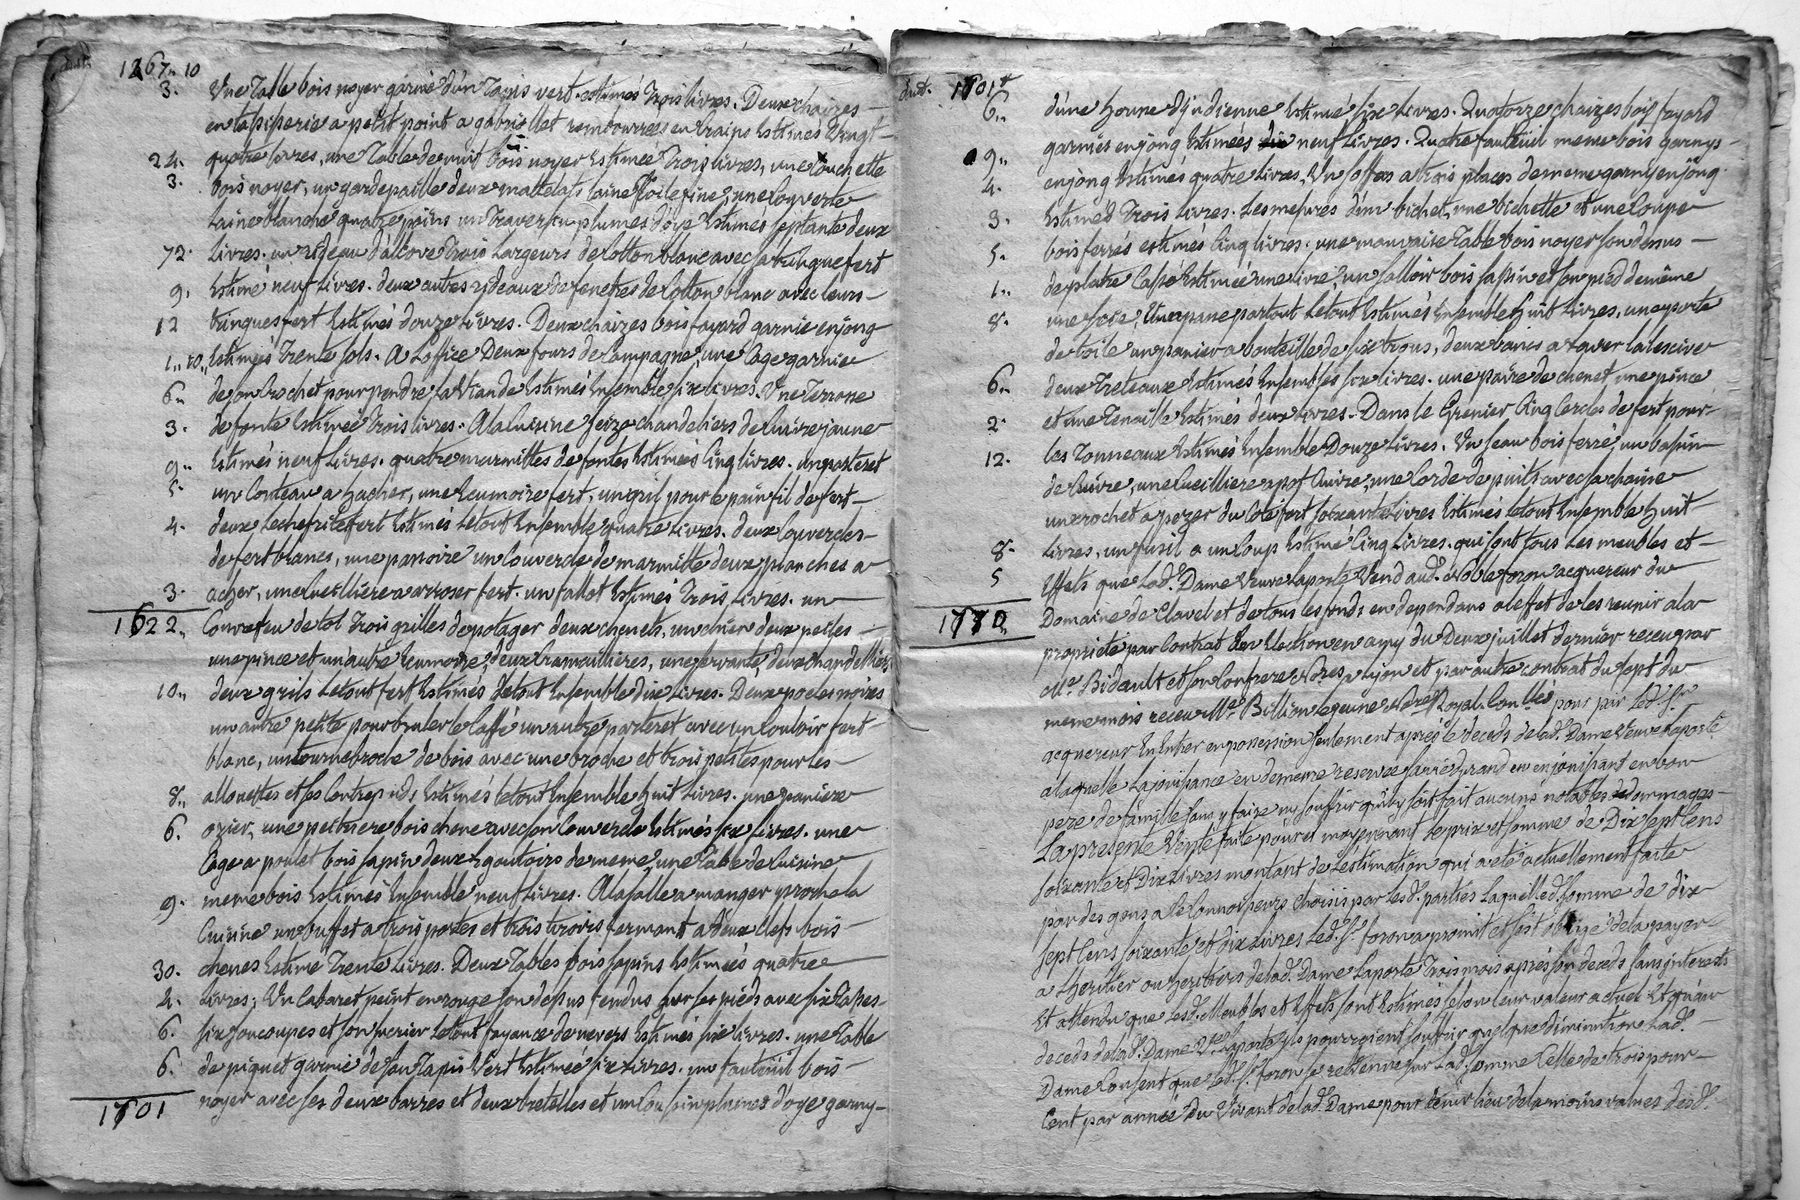 1267" 10
3. Une Table bois noyer garnie d'un Tapis vert estimés Trois livres. Deux chaizes
en tapisserie a petit point a gabriollet rembourrees en Crains Estimés Vingt
24. quatre livres, une Table de nuit bois noyer Estimée Trois livres, une Couchette
3. bois noyer, un gardepaille deux mattelats laine Toile fine, une Couverte
Laine blanche quatre un Traversin plumes d'oye Estimés septante deux
72. Livres. un rideau d'alcove Trois Largeurs de Cotton blanc avec sa tringue fert
9. Estimé neuf Livres. deux autres rideaux de fenetres de Cotton blanc avec leurs
12 tringues fert Estimés douze Livres. Deux chaizes bois fayard garnie en jong
1" 10" Estimées Trente sols. A L'office Deux fours de Campagne, une Cage garnie
6" de son Crochet pour pendre la Viande Estimés Ensemble six livres. Une Terrasse
3. de fonte Estimée Trois livres. A la Cuisine seize chandeliers de Cuivre jaune
9" Estimés neuf Livres. quatre marmittes de fontes Estimées Cinq livres. un parteret
5. un Couteau a hacher, une Ecumoire fert, un gril pour le pain fil de fert
4. deux Lechefrite fert Estimés Le tout Ensemble quatre Livres. deux Couvercles
de fert blancs, une passoire un Couvercle de marmitte deux planches a
3. acher, une Cuilliere a arroser fert. un fallot Estimés Trois Livres. un
1622" Couvrefeu de tol Trois grilles de potager deux chenets, un deux pesles
une pince et un autre Ecumoire, deux Cramaillieres, une servante, deux chandelliers
10" deux grils Le tout fert Estimés Le tout Ensemble dix Livres. Deux poeles noires
un autre petite pour bruler le Caffé un autre parteret avec un Couloir fert
blanc, un tournebroche de bois avec une broche et trois petites pour les
8" allouettes et ses Contrepoids Estimés Le tout Ensemble huit Livres. une paniere
6. ozier, une petriere bois chene avec son Couvercle Estimés six Livres. une
Cage a poulet bois sapin deux Egoutoirs de meme une Table de Cuisine
9. meme bois Estimés Ensemble neuf Livres. A la salle a manger proche la
Cuisine un buffet a trois portes et trois tiroirs fermant a deux clefs bois
30. chenes Estimé Trente Livres. Deux Tables bois sapins Estimées quatre
4. Livres; Un Cabaret peint en rouge son dessus fendus sur ses pieds avec six Tasses
6. six soucoupes et son sucrier Le tout fayance de nevers Estimés six livres. une Table
6. de piquet garnie de son Tapis Vert Estimée six Livres. un fauteuil bois
1701 noyer avec ses deux barres et deux bretelles et un Coussin plumes d'oye garny
1701
6" d'une housse d'jndienne Estimé six Livres. Quatorze chaizes bois fayard
9" garnies en jong Estimées neuf Livres. Quatre fauteuil meme bois garnys
4. en jong Estimés quatre Livres. Un soffas a trois places de meme garnis en jong
3. Estimés Trois Livres. Les mesures d'un bichet, une bichette et une Coupe
5. bois ferrés estimés Cinq livres. une mauvaise Table bois noyer son dessus
1" de platre Cassé Estimée une Livre, un salloir bois sapin et son pied de même
8. une scie, Une passe partout Le tout Estimés Ensemble huit Livres, une porte
de toile un panier a bouteille de six trous, deux bancs a Laver la lescive
6" deux Treteaux Estimés Ensembles six Livres. une paire de chenet une pince
2. et une Tenaille Estimés deux Livres. Dans le Grenier Cinq Cercles de fert pour
12. les Tonneaux Estimés Ensemble Douze Livres. Un seau bois ferré, un bassin
de Cuivre, une Cueilliere a pot Cuivre, une Corde de puits avec sa chaine
un crochet a pezer du Coté fort soixante Livres Estimés le tout Ensemble huit
8. Livres, un fusil a un Coup Estimé Cinq Livres. qui sont tous Les meubles et
5 Effets que Lad. Dame Veuve Laporte Vend aud. foron acquereur du
1770" Domaine de Clavel et de tous les fonds en dependans a l'effet de les reunir a la
proprieté par Contrat d'en Election en amy du Deux juillet dernier receu par
Me. Bidault et son Confrere Nores a Lyon et par autre contrat du sept du
meme mois receu Me. Billion Lejeune Nore Royal pour par Led. Sr.
acquereur En Entrer en possession seulement après le deceds de lad. Dame Veuve Laporte
a laquelle La jouissance en demeure reservée sa vie durand en en jouissant en bon
pere de famille sans y faire ny souffrir qu'il y soit fait aucuns notables dommages
La presente Vente faite pour et moyennant Le prix et somme de Dix sept Cens
soixante et Dix Livres montant de L'estimation qui a eté actuellement faite
par des gens a ce Connoisseurs choisis par les d. parties Laquelle d. somme de dix
sept Cens soixante et dix Livres Led. Sr. foron a promit et s'est obligé de la payer
a L'heritier ou heritiers de lad. Dame Laporte Trois mois après son deceds sans interests
Et attendu que Lesd. Meubles et Effets sont Estimés selon leur valeur actuel Et qu'au
deceds de lad. Dame Ve. Laporte ils pourroient souffrir quelque diminution Lad.
Dame Consent que Led. Sr. foron se retienne sur Lad. somme Celle de trois pour
Cent par année du Vivant de lad. Dame pour tenir lieu de la moins values des d.